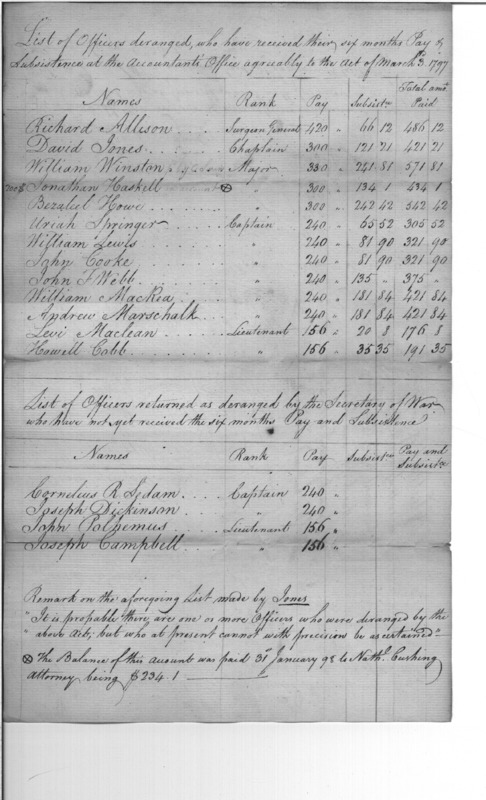 List of Officers deranged, who have received their six months Pay &
Subsistence at the Accountants Office agreeably to the Act of March 3d 1797
Names Rank Pay Subsistce Total amt Paid
Richard Allison .... Surgeon General 420 " 66 12 486 12
David Jones .... Chaplain 300 " 121 21 421 21
William Winston Major 330 " 241 81 571 81
Jonathan Haskell ⊗ " 300 " 134 1 434 1
Bezaleel Howe .... " 300 " 242 42 542 42
Uriah Springer .... Captain 240 65 52 305 52
William Lewis .... " 240 " 81 90 321 90
John Cooke .... " 240 " 81 90 321 90
John F Webb .... " 240 " 135 " 375 "
William MacRea .... " 240 " 181 84 421 84
Andrew Marschalk .... " 240 " 181 84 421 84
Levi Maclean .... Lieutenant 156 " 20 8 176 8
Howell Cobb .... " 156 " 35 35 191 35
List of Officers returned as deranged by the Secretary of War
who have not yet received the six months Pay and Subsistence
Names Rank Pay Subsistce Pay and Subsistce
Cornelius R Sedam .... Captain 240 "
Joseph Dickinson .... " 240 "
John Polhemus .... Lieutenant 156 "
Joseph Campbell .... " 156 "
Remark on the aforegoing List made by Jones
"It is propable there are one or more Officers who were deranged by the
" above Act; but who at present cannot with precision be ascertained"
⊗ The Balance of this Amount was paid 31st January 98 to Nathl. Cushing
Attorney being $ 234.1